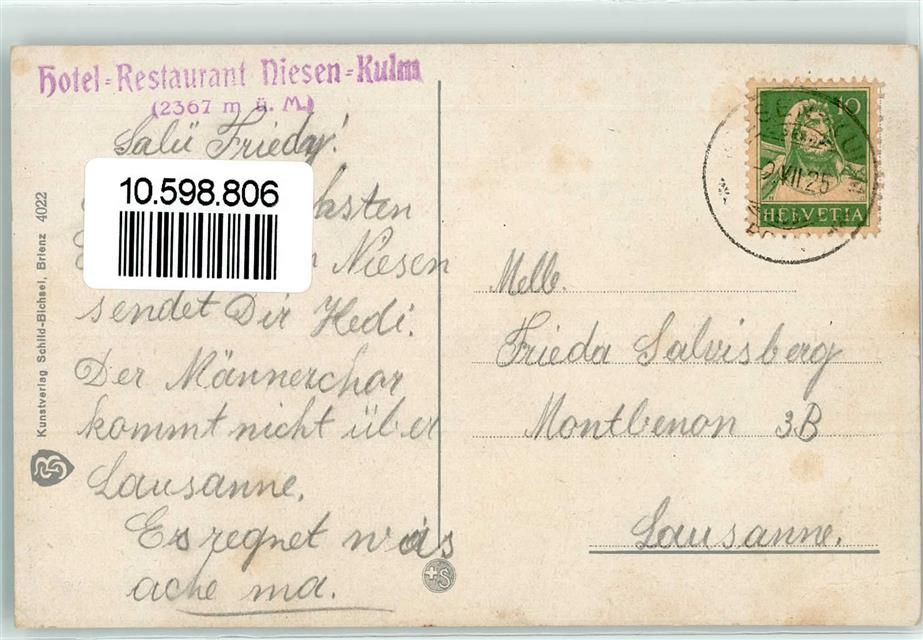 Hotel-Restaurant Niesen-Kulm
(2367 m ü. M.)
Salü Frieda!
10.598.806
Niesen
sendet Dir Hedi.
Der Männerchor
kommt nicht über
Lausanne.
Es regnet was
ache ma.
Kunstverlag Schild-Bichsel, Brienz 4022
10
VII.25
HELVETIA
Melle.
Frieda Salvisberg
Montbenon 3B
Lausanne.